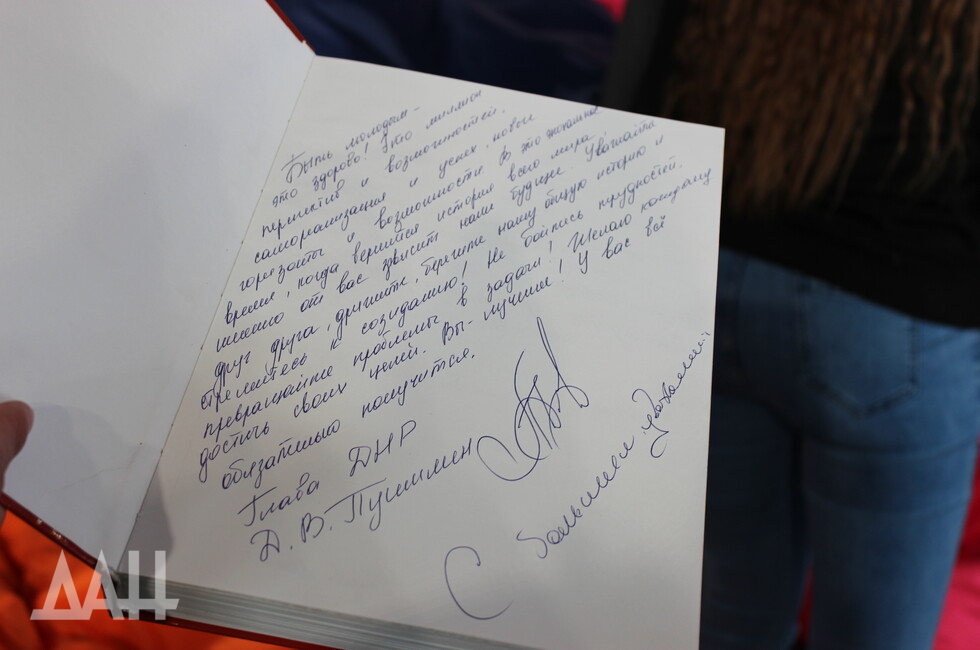 Быть молодым -
это здорово! Это миллион
перспектив и возможностей,
самореализация и успех, новые
горизонты и возможности. В это
время, когда вершится история всего мира,
именно от вас зависит наше будущее. Уважайте
друг друга, дружите, берегите нашу общую историю и
стремитесь к созиданию! Не бойтесь трудностей.
превращайте проблемы в задачи! Желаю каждому
достичь своих целей. Вы - лучшие! У вас всё
обязательно получится.
Глава ДНР
Д. В. Пушилин
С большим уважением!
ДАН